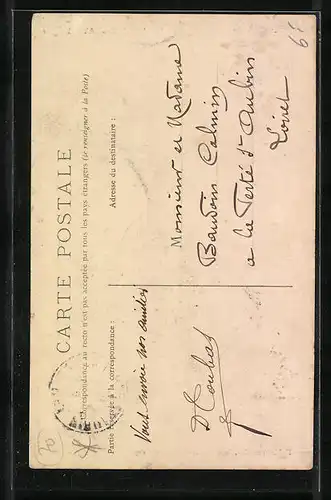 CARTE POSTALE
La Correspondance au recto n'est pas acceptée par tous les pays étrangers (se renseigner à la Poste)
Partie réservée à la correspondance :
Adresse du destinataire :
Vous envoie nos amitiés
Monsieur et Madame
Baudoin
a la Ferté St Aubin
Loiret